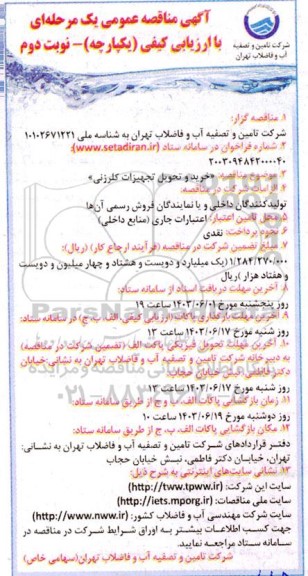 آگهی مناقصه عمومی یک مرحله‌ای
با ارزیابی کیفی (یکپارچه)- نوبت دوم
شرکت تامین و تصفیه
آب و فاضلاب تهران
۱. مناقصه گزار:
شرکت تامین و تصفیه آب و فاضلاب تهران به شناسه ملی ۱۰۱۰۲۶۷۱۲۲۱
۲. شماره فراخوان در سامانه ستاد (www.setadiran.ir):
۲۰۰۳۰۹۴۸۴۲۰۰۰۰۴۰
۳. موضوع مناقصه: «خرید و تحویل تجهیزات کلرزنی»
۴. الزامات شرکت در مناقصه:
تولیدکنندگان داخلی و یا نمایندگان فروش رسمی آن‌ها
۵. محل تامین اعتبار: اعتبارات جاری (منابع داخلی)
۶. نحوه پرداخت: نقدی
۷. مبلغ تضمین شرکت در مناقصه (فرآیند ارجاع کار) (ریال):
۱/۲۸۴/۲۷۰/۰۰۰ (یک میلیارد و دویست و هشتاد و چهار میلیون و دویست
و هفتاد هزار )ریال
۸. آخرین مهلت دریافت اسناد از سامانه ستاد:
روز پنجشنبه مورخ ۱۴۰۳/۰۶/۰۱ ساعت ۱۹
۹. آخرین مهلت بارگذاری پاکات (ارزیابی کیفی، الف، ب، ج) در سامانه ستاد:
روز شنبه مورخ ۱۴۰۳/۰۶/۱۷ ساعت ۱۳
۱۰. آخرین مهلت تحویل فیزیکی پاکت الف (تضمین شرکت در مناقصه)
به دبیرخانه شرکت تامین و تصفیه آب و فاضلاب تهران به نشانی: خیابان
دکتر فاطمی، نبش خیابان حجاب
روز شنبه مورخ ۱۴۰۳/۰۶/۱۷ ساعت ۱۳
۱۱. زمان بازگشایی پاکات الف، ب و ج از طریق سامانه ستاد:
روز دوشنبه مورخ ۱۴۰۳/۰۶/۱۹ ساعت ۱۰
۱۲. مکان بازگشایی پاکات الف، ب، ج از طریق سامانه ستاد:
دفتر قراردادهای شرکت تامین و تصفیه آب و فاضلاب تهران به نشانی:
تهران، خیابان دکتر فاطمی، نبش خیابان حجاب
۱۳. نشانی سایت‌های اینترنتی به شرح ذیل:
سایت این شرکت: (http://tww.tpww.ir)
سایت ملی مناقصات: (http://iets.mporg.ir)
سایت شرکت مهندسی آب و فاضلاب کشور: (http://www.nww.ir)
جهت کسب اطلاعات بیشتر به اوراق شرایط شرکت در مناقصه در
سامانه ستاد مراجعه نمایید.
شرکت تامین و تصفیه آب و فاضلاب تهران(سهامی خاص)